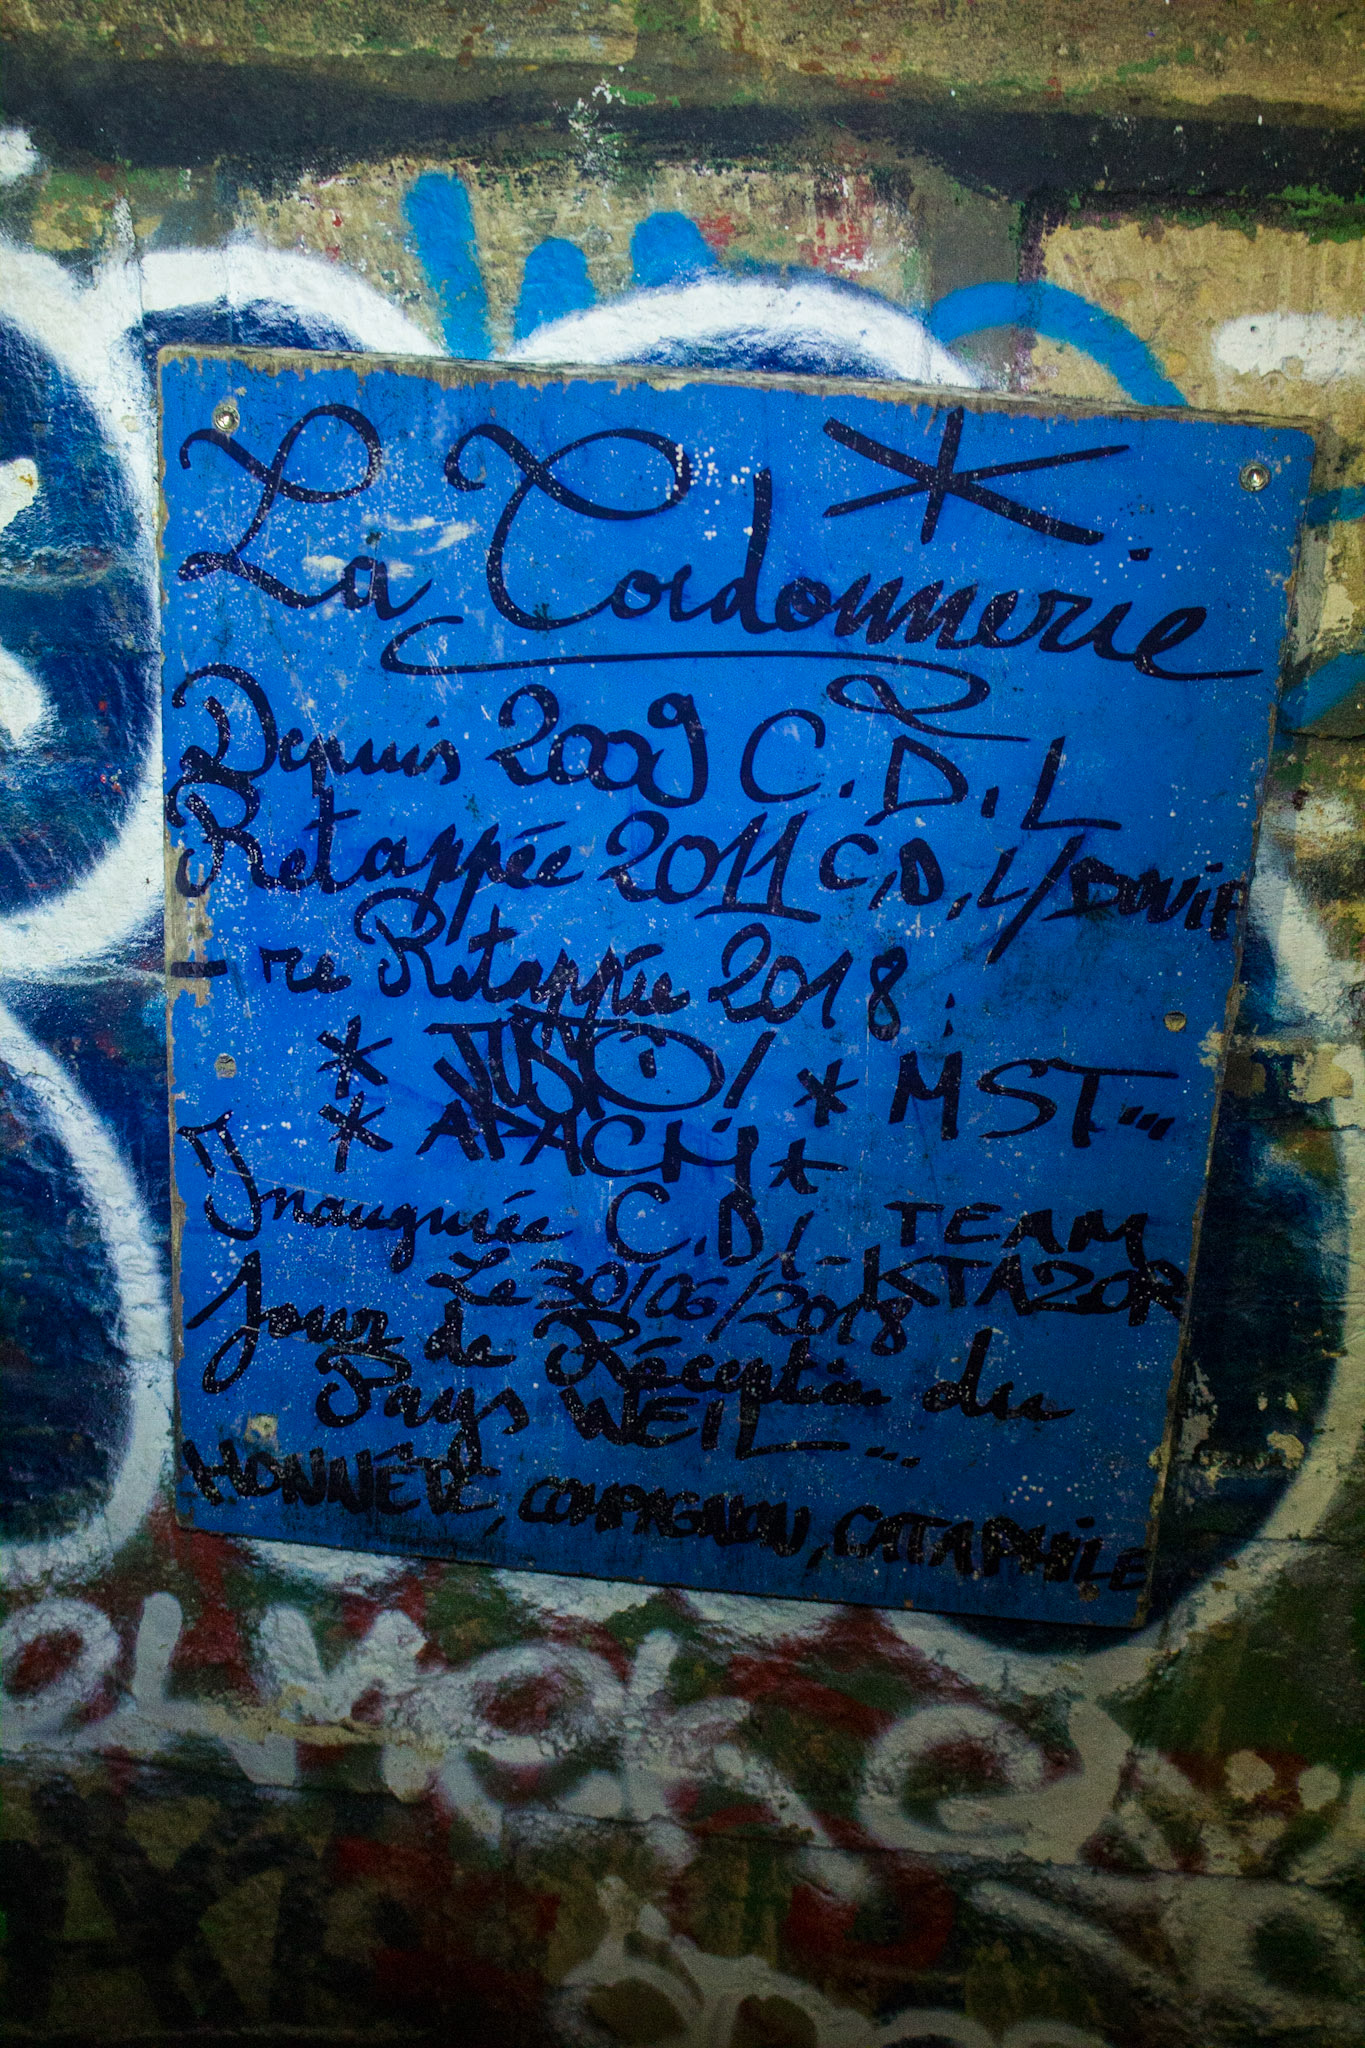 La Cordonnerie
Depuis 2009 C.D.L
Retappée 2011 C.D.L/
- re Retappée 2018 :
* JUSTO! * MST...
* APACH! *
Inaugurée C.D.L - TEAM
Le 30/06/2018 KTAZOR
Jour de Réception du
Pays WEIL...
HONNÊTE, COMPAGNON, CATAPHILE